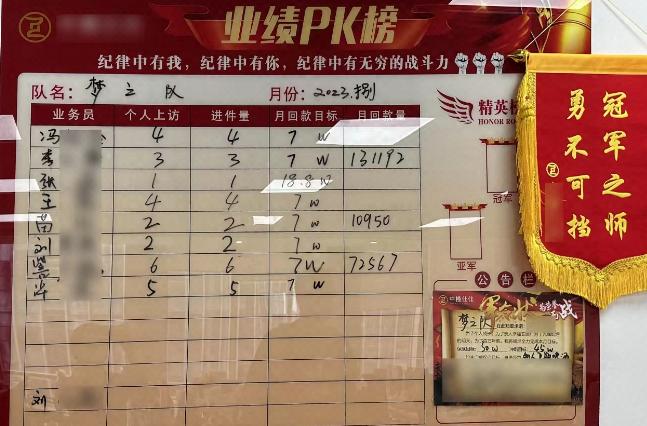 业绩PK榜
纪律中有我,纪律中有你,纪律中有无穷的战斗力
队名: 梦之队 月份: 2023.捌
业务员 个人上访 进件量 月回款目标 月回款量
冯 4 4 7W
李 3 3 7W 131192
张 1 1 18.8W
王 4 4 7W
苗 2 2 7W 10950
刘 2 2 7W
6 6 7W 72567
5 5 7W
刘
精英榜
HONOR RO
冠军
亚军
公告栏
梦之队
30W 45W
冠军之师
勇不可挡